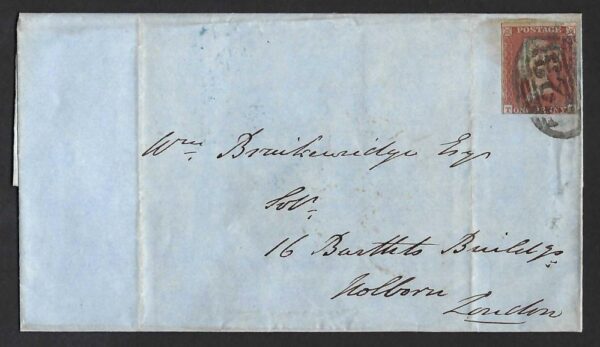 POSTAGE
ONE PENNY
Wm. Brinkenridge Esqr
Solr.
16 Bartlets Buildgs
Holborn
London